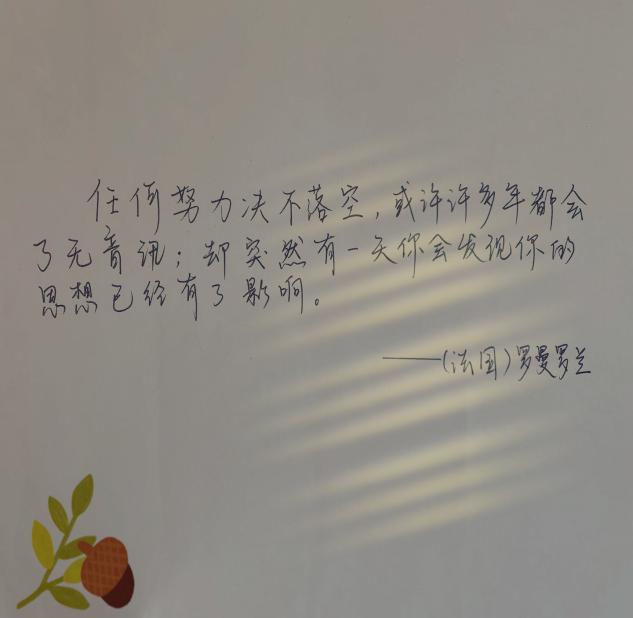 任何努力决不落空，或许许多年都会
了无音讯；却突然有一天你会发现你的
思想已经有了影响。
——（法国）罗曼罗兰